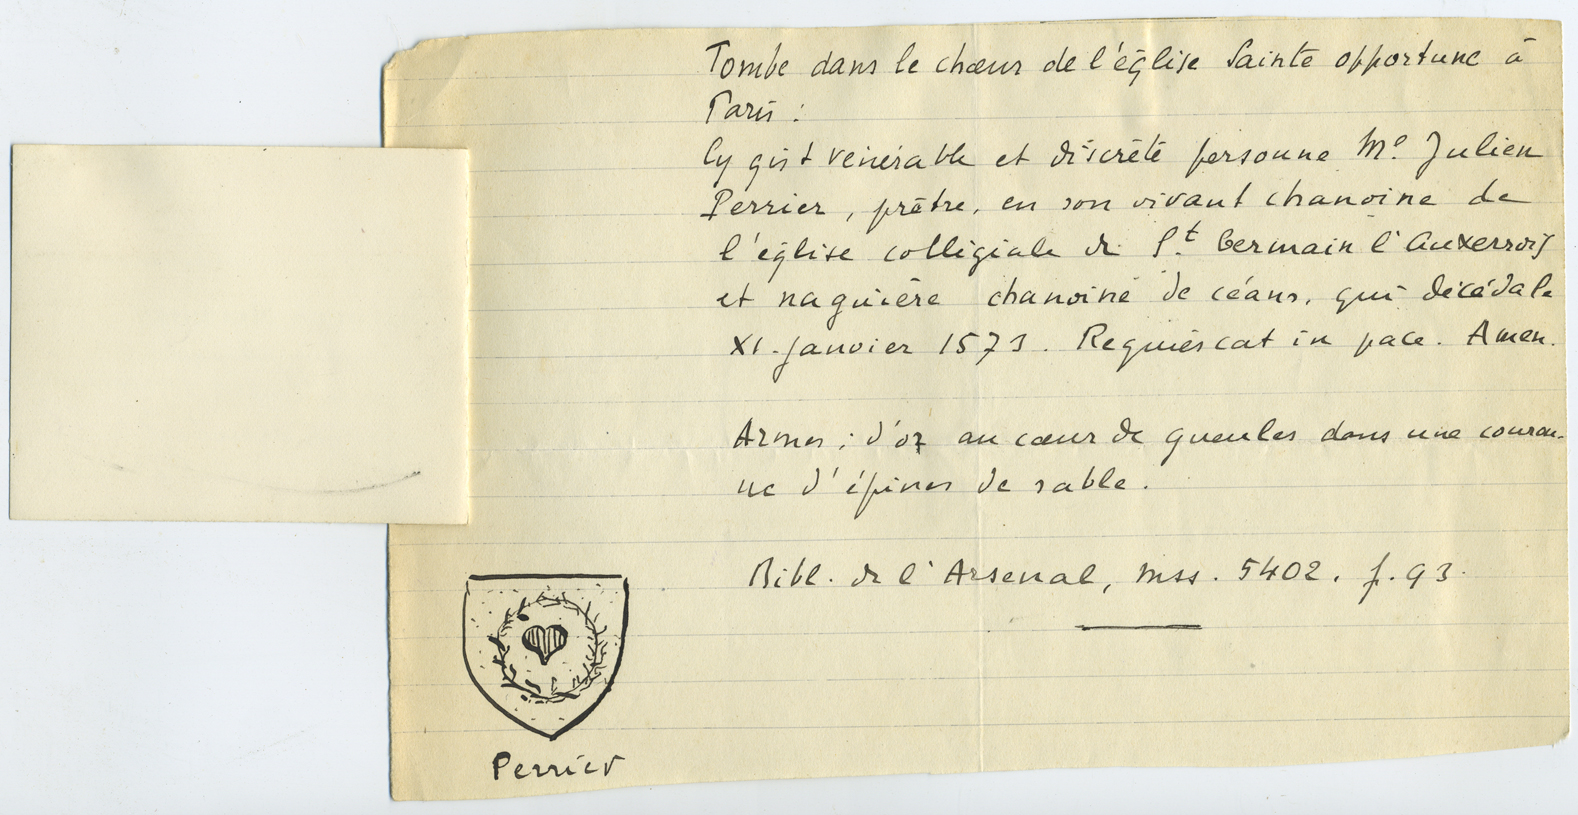 Tombe dans le chœur de l'église Sainte opportune à
Paris :
Cy gist vénérable et discrète personne Me. Julien
Perrier, prêtre, en son vivant chanoine de
l'église collégiale de St. Germain l'Auxerrois
et naguière chanoine de céans, qui décéda le
XI. janvier 1573. Requiescat in pace. Amen.
Armes : d'or au cœur de gueules dans une couron-
ne d'épines de sable.
Bibl. de l'Arsenal, mss. 5402. f. 93.
Perrier